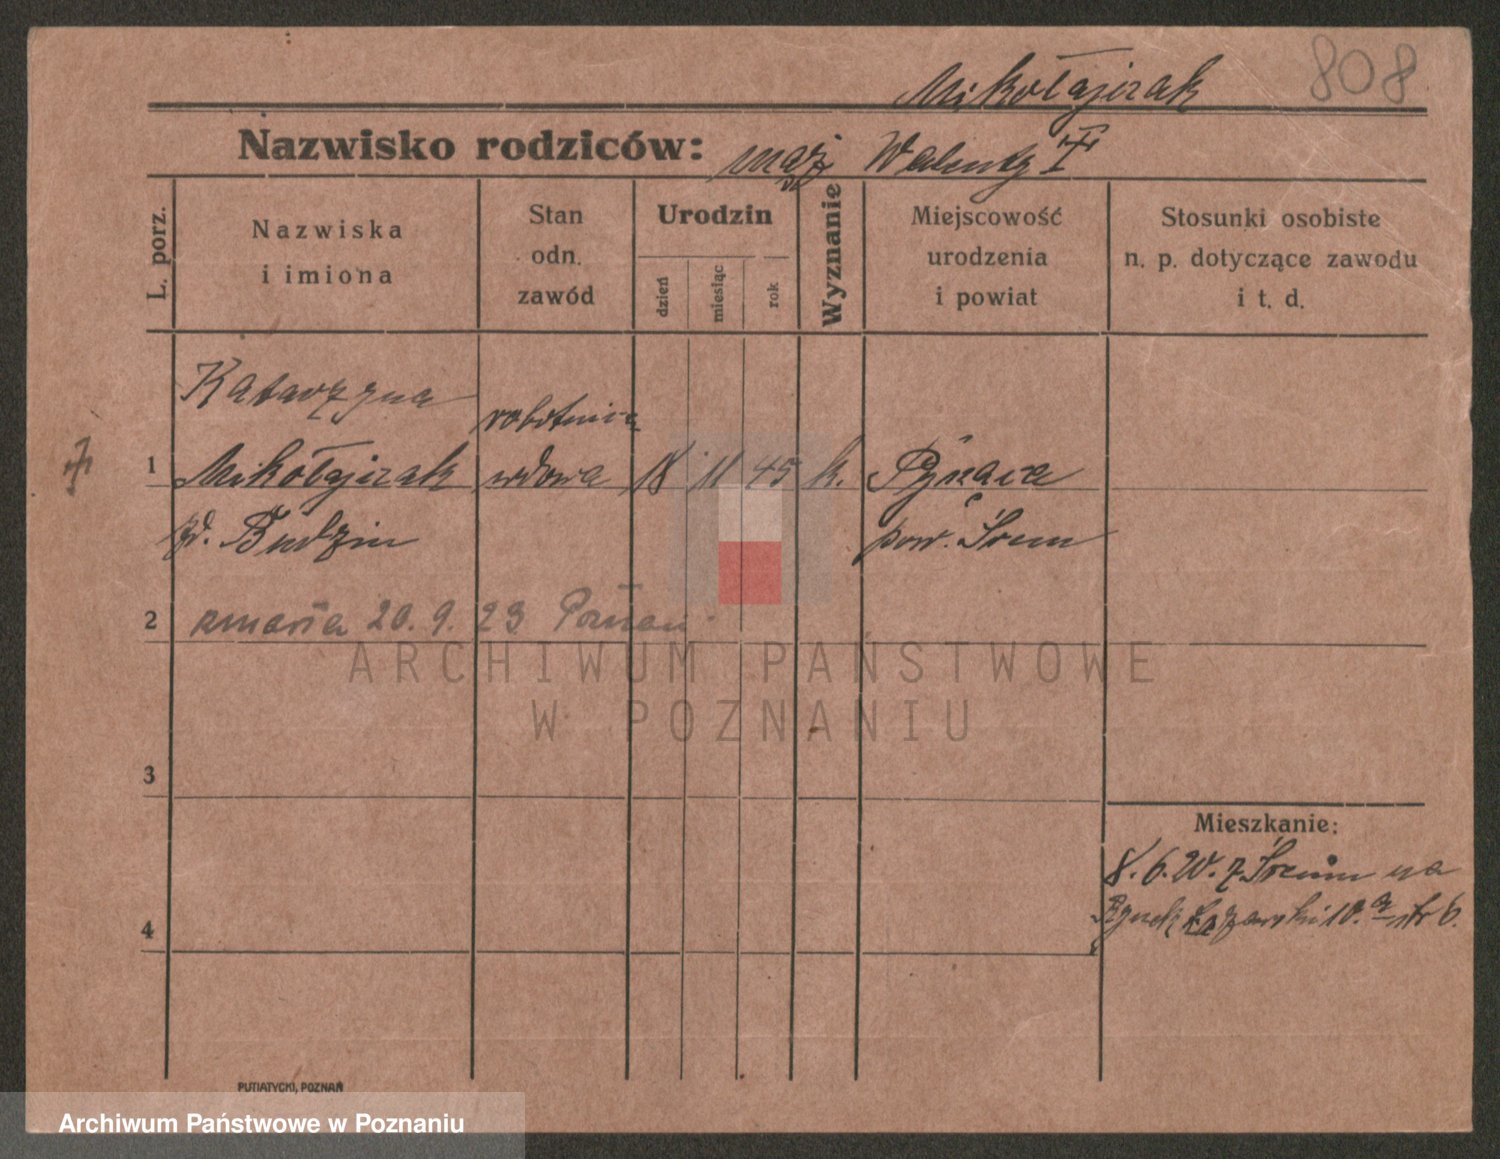 808
Mikołajczak
Nazwisko rodziców: mąż Walenty
L. porz.
Nazwiska
i imiona
Stan
odn.
zawód
Urodzin
dzień
miesiąc
rok
Wyznanie
Miejscowość
urodzenia
i powiat
Stosunki osobiste
n. p. dotyczące zawodu
i t. d.
Katarzyna
robotnica
1 Mikołajczak wdowa 18 11 45 k.
zd. Budzin pow. Śrem
2 zmarła 20. 9. 23 Poznań
ARCHIWUM PAŃSTWOWE
W POZNANIU
3
Mieszkanie:
8. 6. 20. z Śremu na
Rynek Łazarski 10.a ptr 6.
4
PUTIATYCKI, POZNAŃ
Archiwum Państwowe w Poznaniu